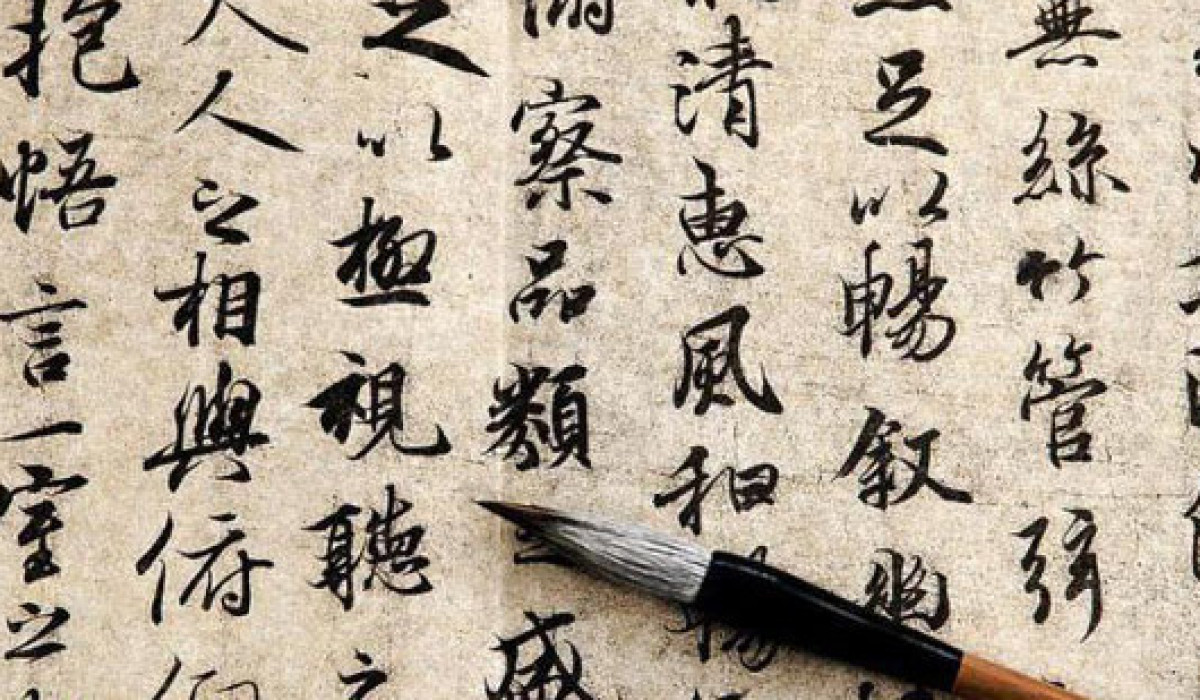 無絲竹管弦
足以暢敘幽
清惠風和暢
察品類之盛
足以極視聽之
人之相與俯仰
抱悟言一室之